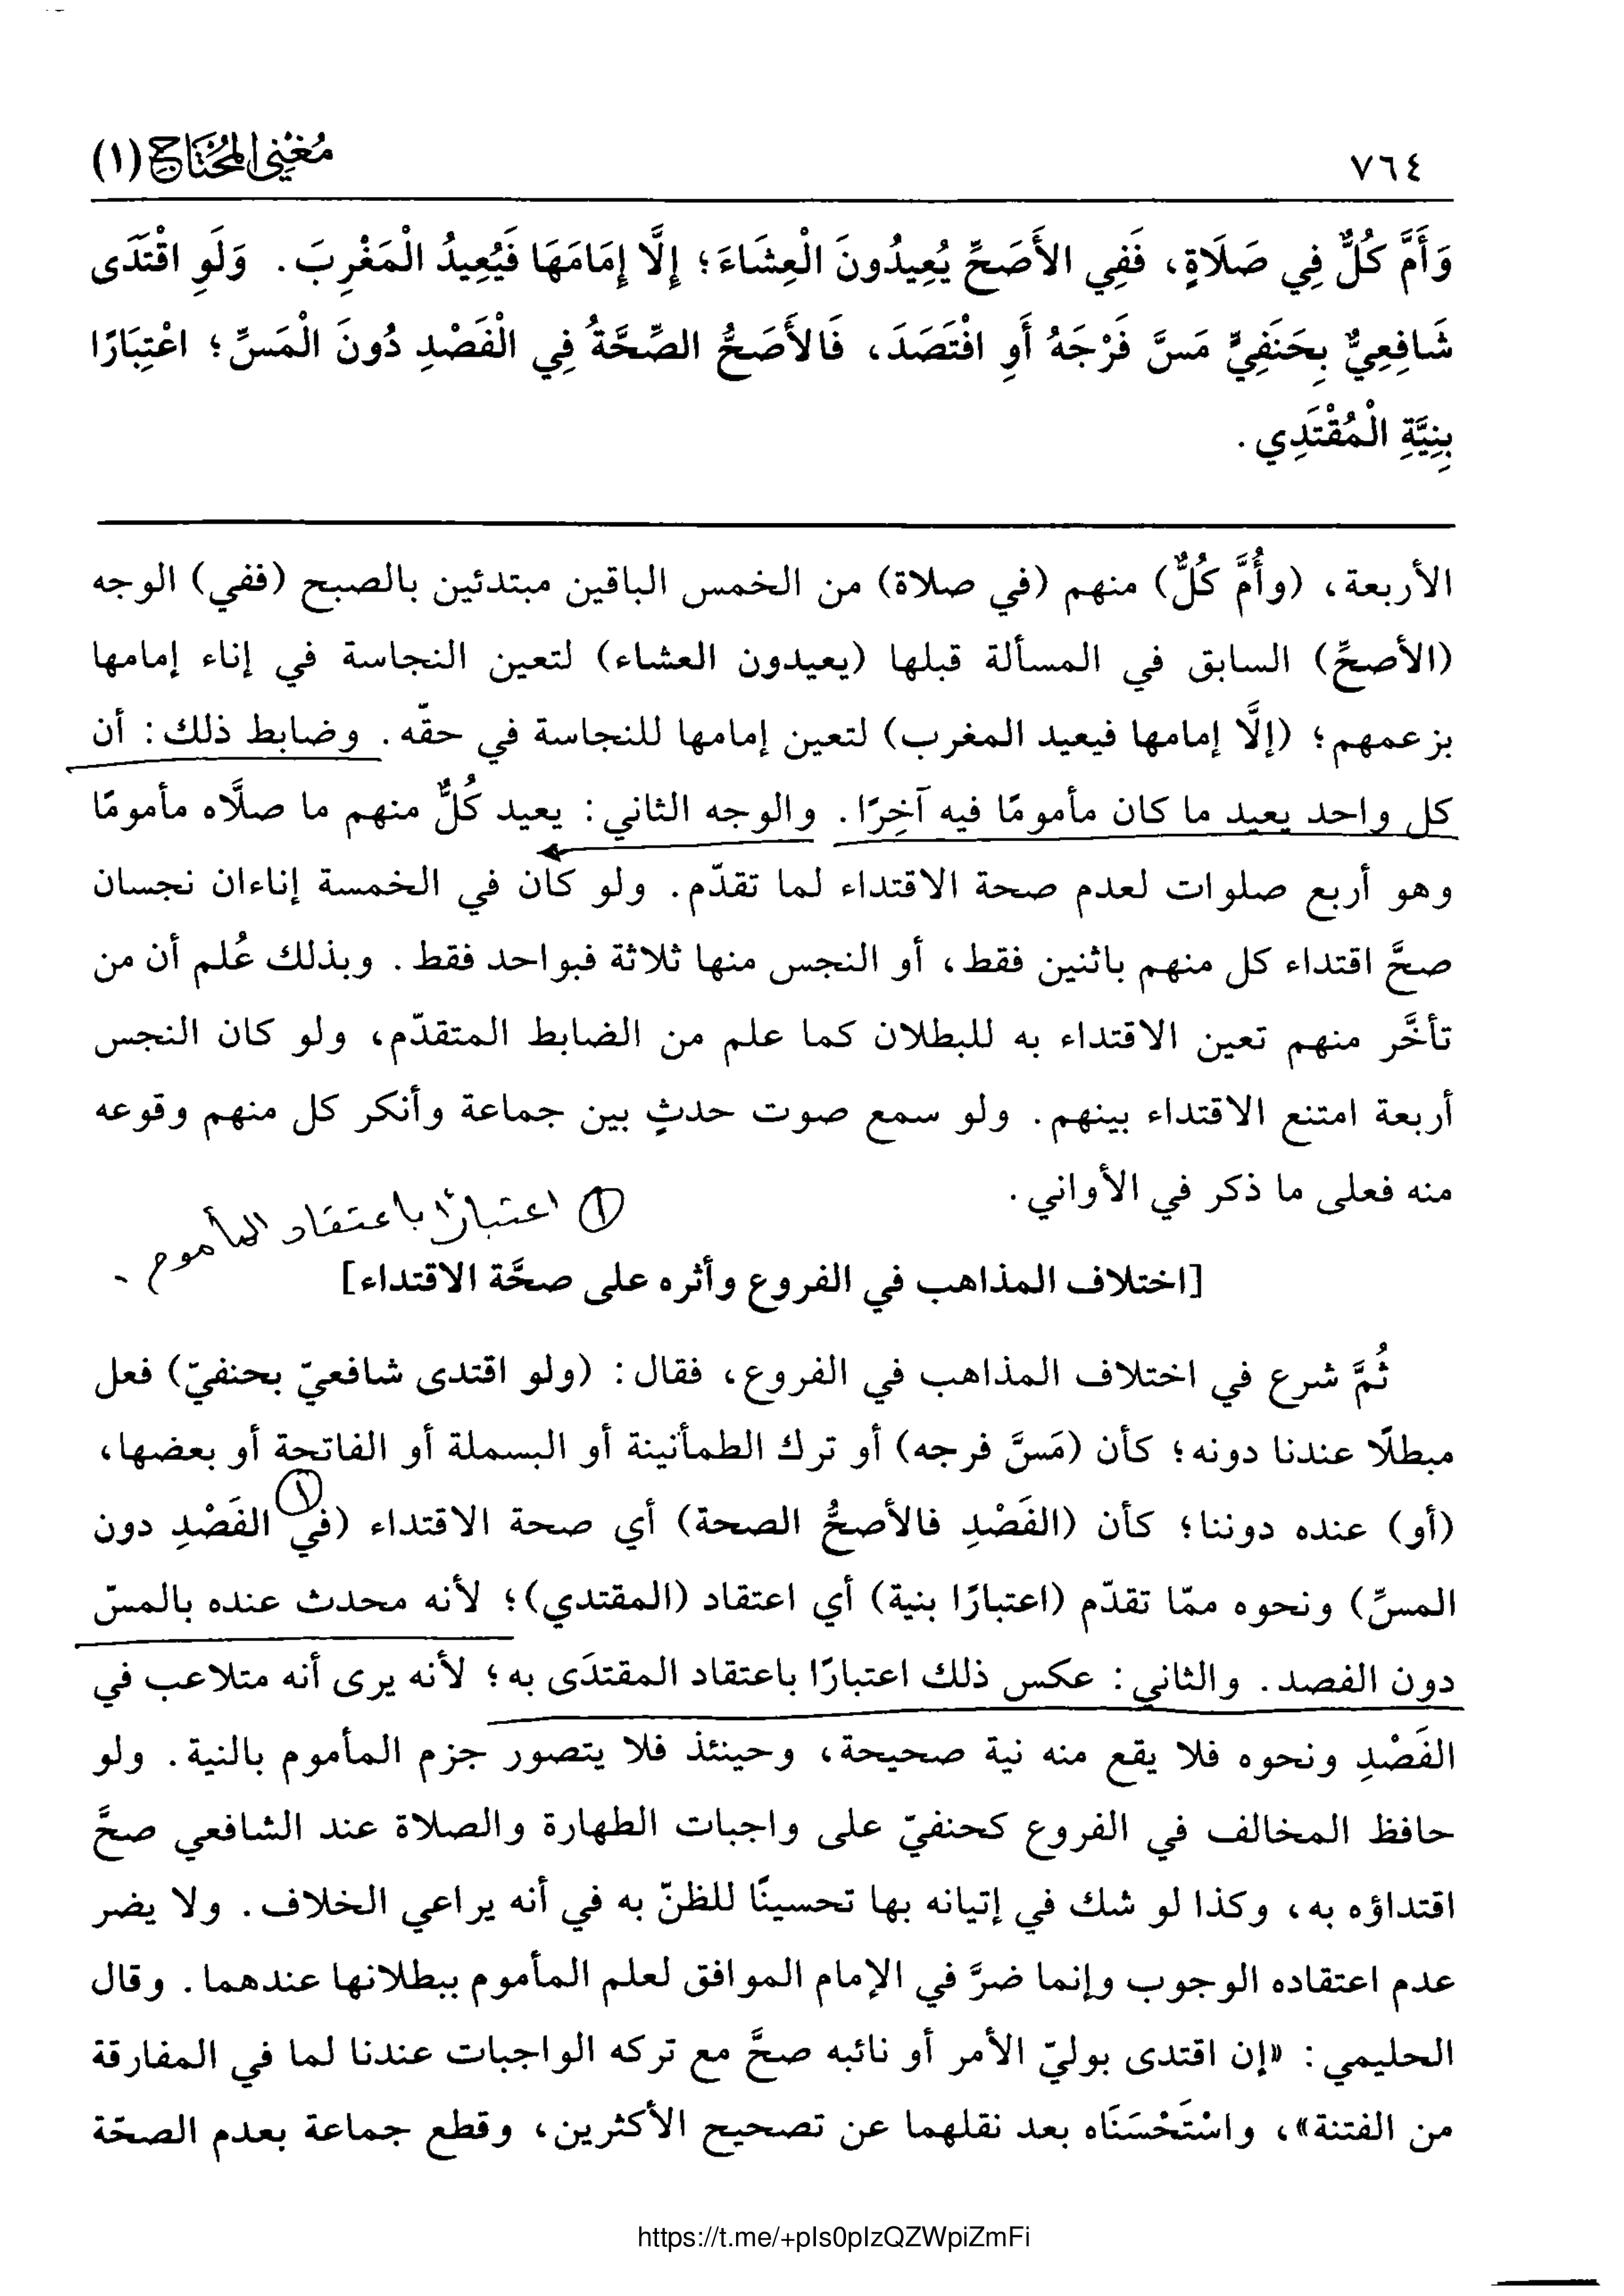 ٧٦٤
مُغْنِي المُحْتَاج (١)
وَأَمَّ كُلٌّ فِي صَلَاةٍ، فَفِي الأَصَحِّ يُعِيدُونَ الْعِشَاءَ؛ إِلَّا إِمَامَهَا فَيُعِيدُ الْمَغْرِبَ. وَلَوِ اقْتَدَى
شَافِعِيٌّ بِحَنَفِيٍّ مَسَّ فَرْجَهُ أَوِ افْتَصَدَ، فَالأَصَحُّ الصِّحَّةُ فِي الْفَصْدِ دُونَ الْمَسِّ؛ اعْتِبَارًا
بِنِيَّةِ الْمُقْتَدِي.
الأربعة، (وأُمَّ كُلٌّ) منهم (في صلاة) من الخمس الباقين مبتدئين بالصبح (ففي) الوجه
(الأصحِّ) السابق في المسألة قبلها (يعيدون العشاء) لتعين النجاسة في إناء إمامها
بزعمهم؛ (إلَّا إمامها فيعيد المغرب) لتعين إمامها للنجاسة في حقّه. وضابط ذلك: أن
كل واحد يعيد ما كان مأمومًا فيه آخِرًا. والوجه الثاني: يعيد كُلٌّ منهم ما صلَّاه مأمومًا
وهو أربع صلوات لعدم صحة الاقتداء لما تقدّم. ولو كان في الخمسة إناءان نجسان
صحَّ اقتداء كل منهم باثنين فقط، أو النجس منها ثلاثة فبواحد فقط. وبذلك عُلم أن من
تأخَّر منهم تعين الاقتداء به للبطلان كما علم من الضابط المتقدّم، ولو كان النجس
أربعة امتنع الاقتداء بينهم. ولو سمع صوت حدثٍ بين جماعة وأنكر كل منهم وقوعه
منه فعلى ما ذكر في الأواني.
① اعتبارًا باعتقاد المأموم.
[اختلاف المذاهب في الفروع وأثره على صحَّة الاقتداء]
ثُمَّ شرع في اختلاف المذاهب في الفروع، فقال: (ولو اقتدى شافعيّ بحنفيّ) فعل
مبطلًا عندنا دونه؛ كأن (مَسَّ فرجه) أو ترك الطمأنينة أو البسملة أو الفاتحة أو بعضها،
(أو) عنده دوننا؛ كأن (الفَصْدِ فالأصحُّ الصحة) أي صحة الاقتداء (في ① الفَصْدِ دون
المسِّ) ونحوه ممّا تقدّم (اعتبارًا بنية) أي اعتقاد (المقتدي)؛ لأنه محدث عنده بالمسّ
دون الفصد. والثاني: عكس ذلك اعتبارًا باعتقاد المقتدَى به؛ لأنه يرى أنه متلاعب في
الفَصْدِ ونحوه فلا يقع منه نية صحيحة، وحينئذ فلا يتصور جزم المأموم بالنية. ولو
حافظ المخالف في الفروع كحنفيّ على واجبات الطهارة والصلاة عند الشافعي صحَّ
اقتداؤه به، وكذا لو شك في إتيانه بها تحسينًا للظنّ به في أنه يراعي الخلاف. ولا يضر
عدم اعتقاده الوجوب وإنما ضرَّ في الإمام الموافق لعلم المأموم ببطلانها عندهما. وقال
الحليمي: «إن اقتدى بوليّ الأمر أو نائبه صحَّ مع تركه الواجبات عندنا لما في المفارقة
من الفتنة»، واسْتَحْسَنَاه بعد نقلهما عن تصحيح الأكثرين، وقطع جماعة بعدم الصحّة
https://t.me/+pIs0pIzQZWpiZmFi